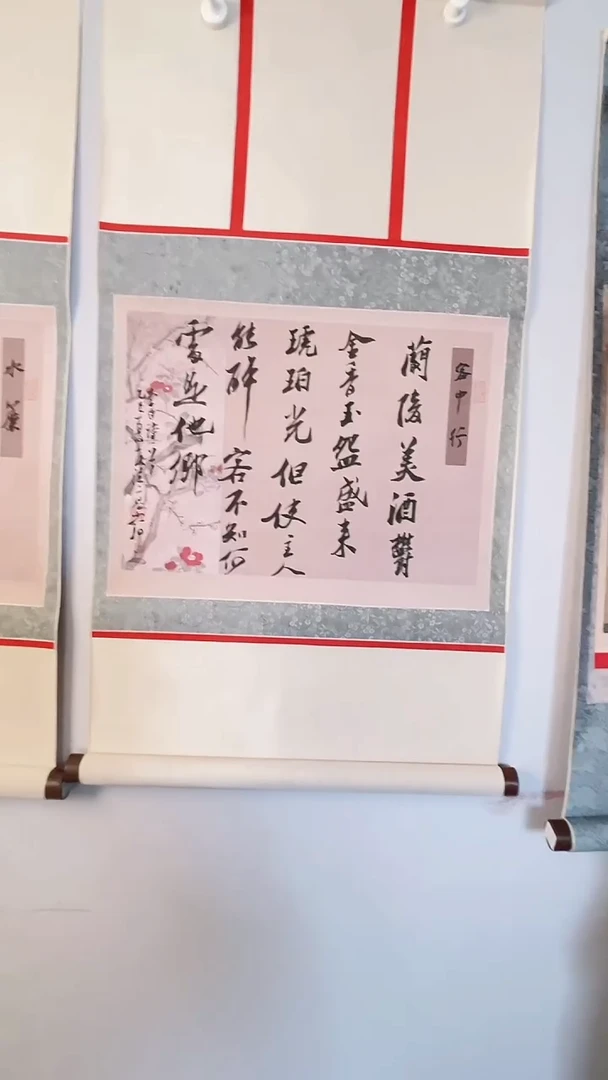 客中行
蘭陵美酒鬱
金香玉盌盛来
琥珀光但使主人
能醉客不知何
處是他鄉
水簾